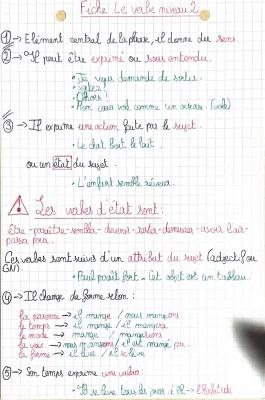 Fiche Le verbe niveau 2
① → Elément central de la phrase, il donne du sens
② → Il peut être exprimé ou sous entendu.
• Je vous demande de sortir.
• Sortez!
• Dehors!
• Mon coeur vole comme un oiseau. (vole)
③ → Il exprime une action faite par le sujet.
• Le chat boit le lait.
ou un état du sujet.
• L'enfant semble rêveur.
! Les verbes d'état sont:
être - paraître - sembler - devenir - rester - demeurer - avoir l'air -
passer pour.
Ces verbes sont suivis d'un attribut du sujet (adjectif ou
GN)
• Paul paraît fort - Cet objet est un tableau.
④ → Il change de forme selon:
la personne → il mange / nous mangeons
le temps → il mange / il mangera
le mode → mange / mangeons
la voix → nous mangeons / il est mangé par...
la forme → il lave / il se lave
⑤ → Son temps exprime une valeur:
Il se lève tous les jours à → l'habitude